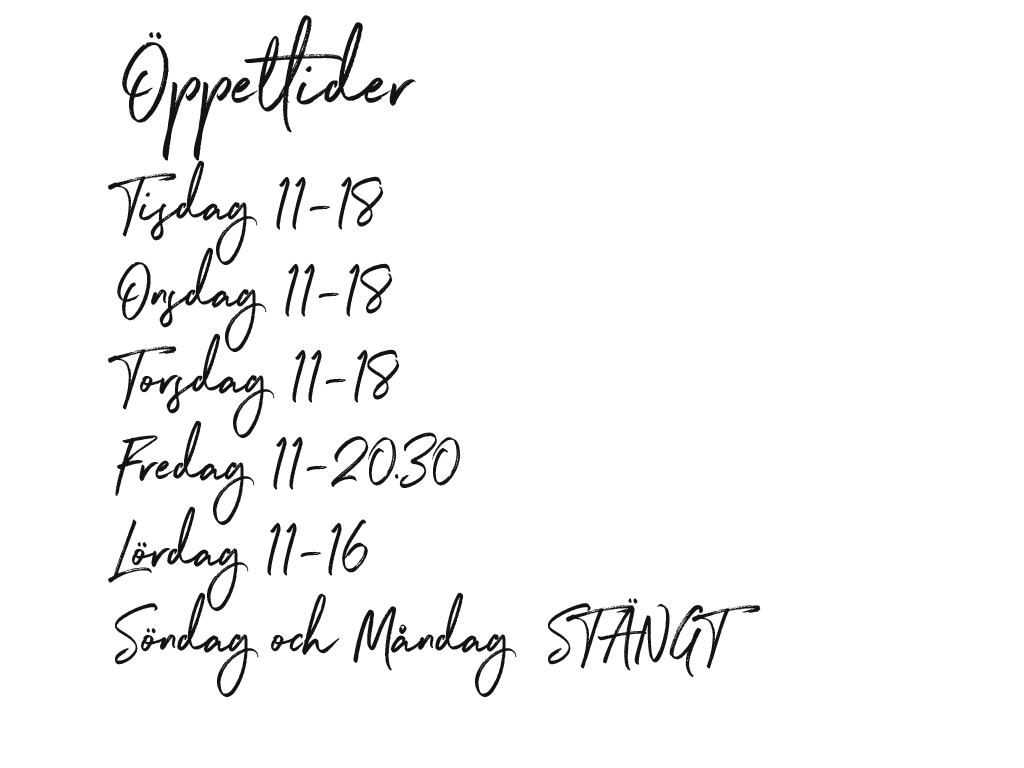 Öppettider
Tisdag 11-18
Onsdag 11-18
Torsdag 11-18
Fredag 11-20.30
Lördag 11-16
Söndag och Måndag STÄNGT